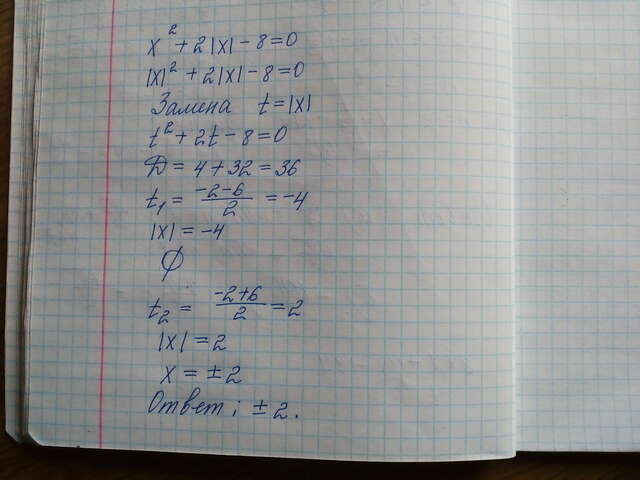 x² + 2|x| - 8 = 0
|x|² + 2|x| - 8 = 0
Замена t = |x|
t² + 2t - 8 = 0
D = 4 + 32 = 36
t₁ = (-2-6)/2 = -4
|x| = -4
∅
t₂ = (-2+6)/2 = 2
|x| = 2
x = ±2
Ответ: ±2.